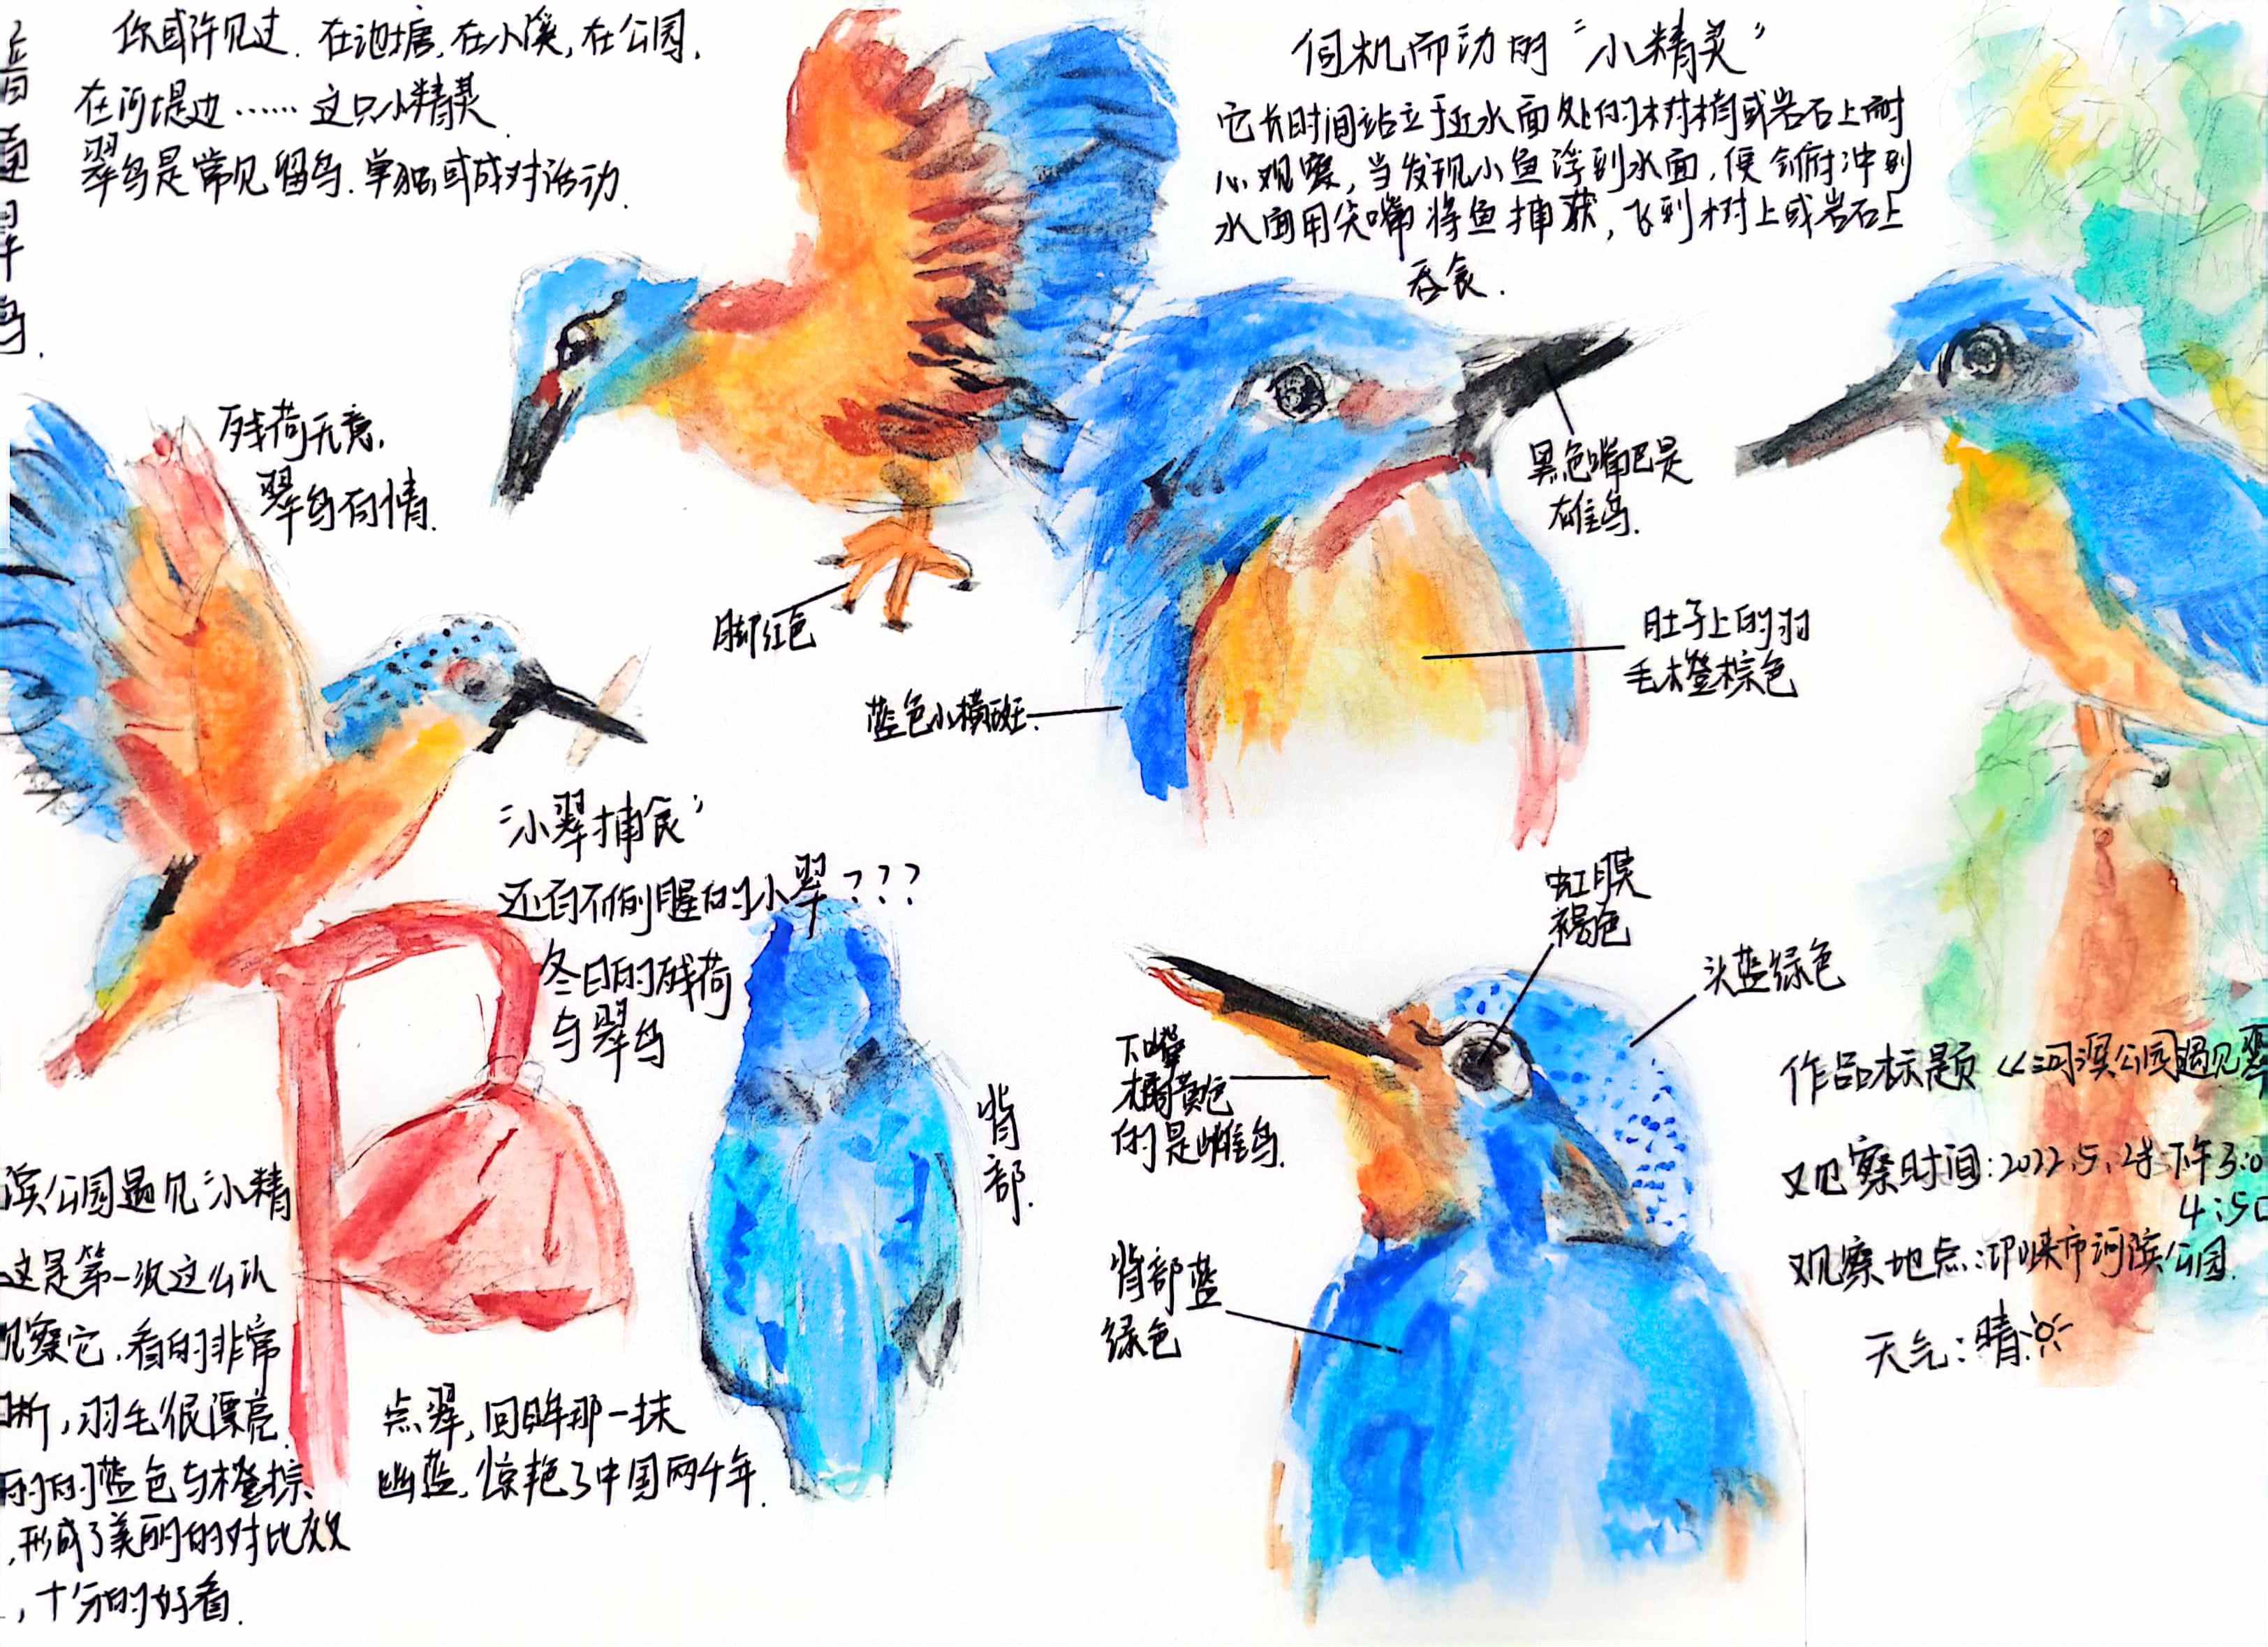 你或许见过.在池塘,在小溪,在公园,
在河堤边……这只小精灵.
翠鸟是常见留鸟.单独或成对活动.
伺机而动的“小精灵”
它长时间站立于近水面处的树梢或岩石上耐
心观察,当发现小鱼浮到水面,便俯冲到
水面用尖嘴将鱼捕获,飞到树上或岩石上
吞食.
残荷无意,
翠鸟有情.
脚红色
黑色嘴巴是
雄鸟.
肚子上的羽
毛橙棕色
蓝色小横斑.
“小翠捕食”
还有不倒腥的小翠???
冬日的残荷
与翠鸟
背部.
虹膜
褐色
头蓝绿色
下嘴
橘黄色
的是雌鸟.
背部蓝
绿色
作品标题《河滨公园遇见翠
观察时间:2022.5.2 下午3:0
4:50
观察地点:邛崃市河滨公园.
天气:晴
滨公园遇见“小精
这是第一次这么认
观察它.看的非常
晰,羽毛很漂亮.
的蓝色与橙棕
,形成了美丽的对比效
,十分的好看.
点翠,回眸那一抹
幽蓝,惊艳了中国两千年.